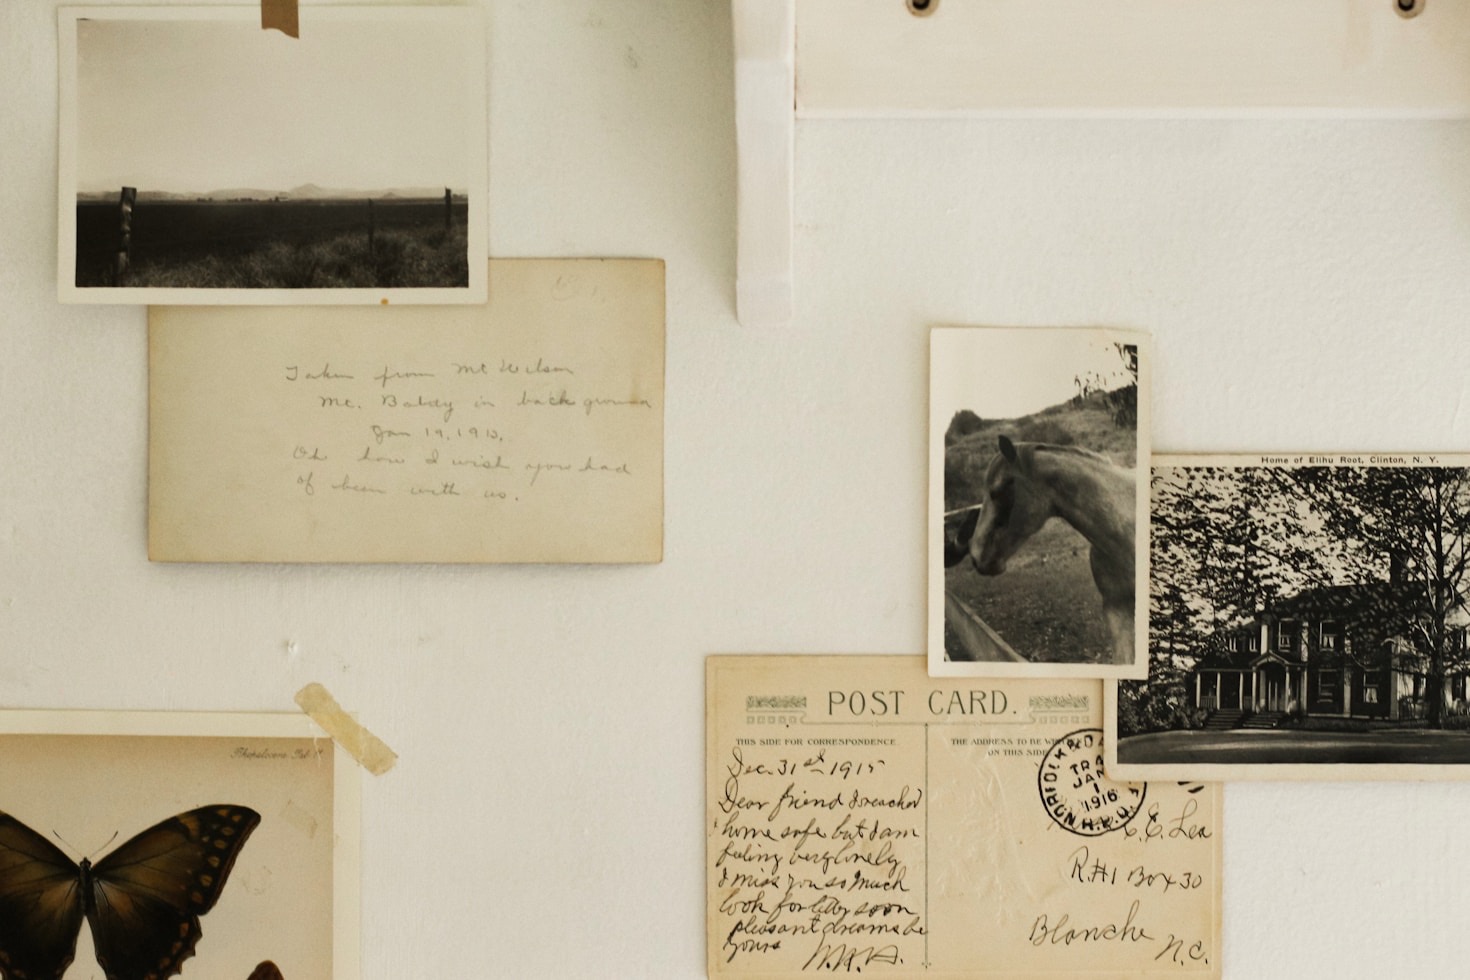 Taken from Mt Wilson
Mt. Baldy in back ground
Jan 19, 1913.
Oh how I wish you had
of been with us.
Home of Elihu Root, Clinton, N. Y.
POST CARD.
THIS SIDE FOR CORRESPONDENCE
Dec. 31st 1915
Dear friend I reached
home safe but I am
feeling very lonely
I miss you so much
look for letter soon
pleasant dreams be
yours
THE ADDRESS TO BE
ON THIS SIDE
NORFOLK
TR
JAN
1
1916
C.C. Lea
R.#1 Box 30
Blanche
N.C.